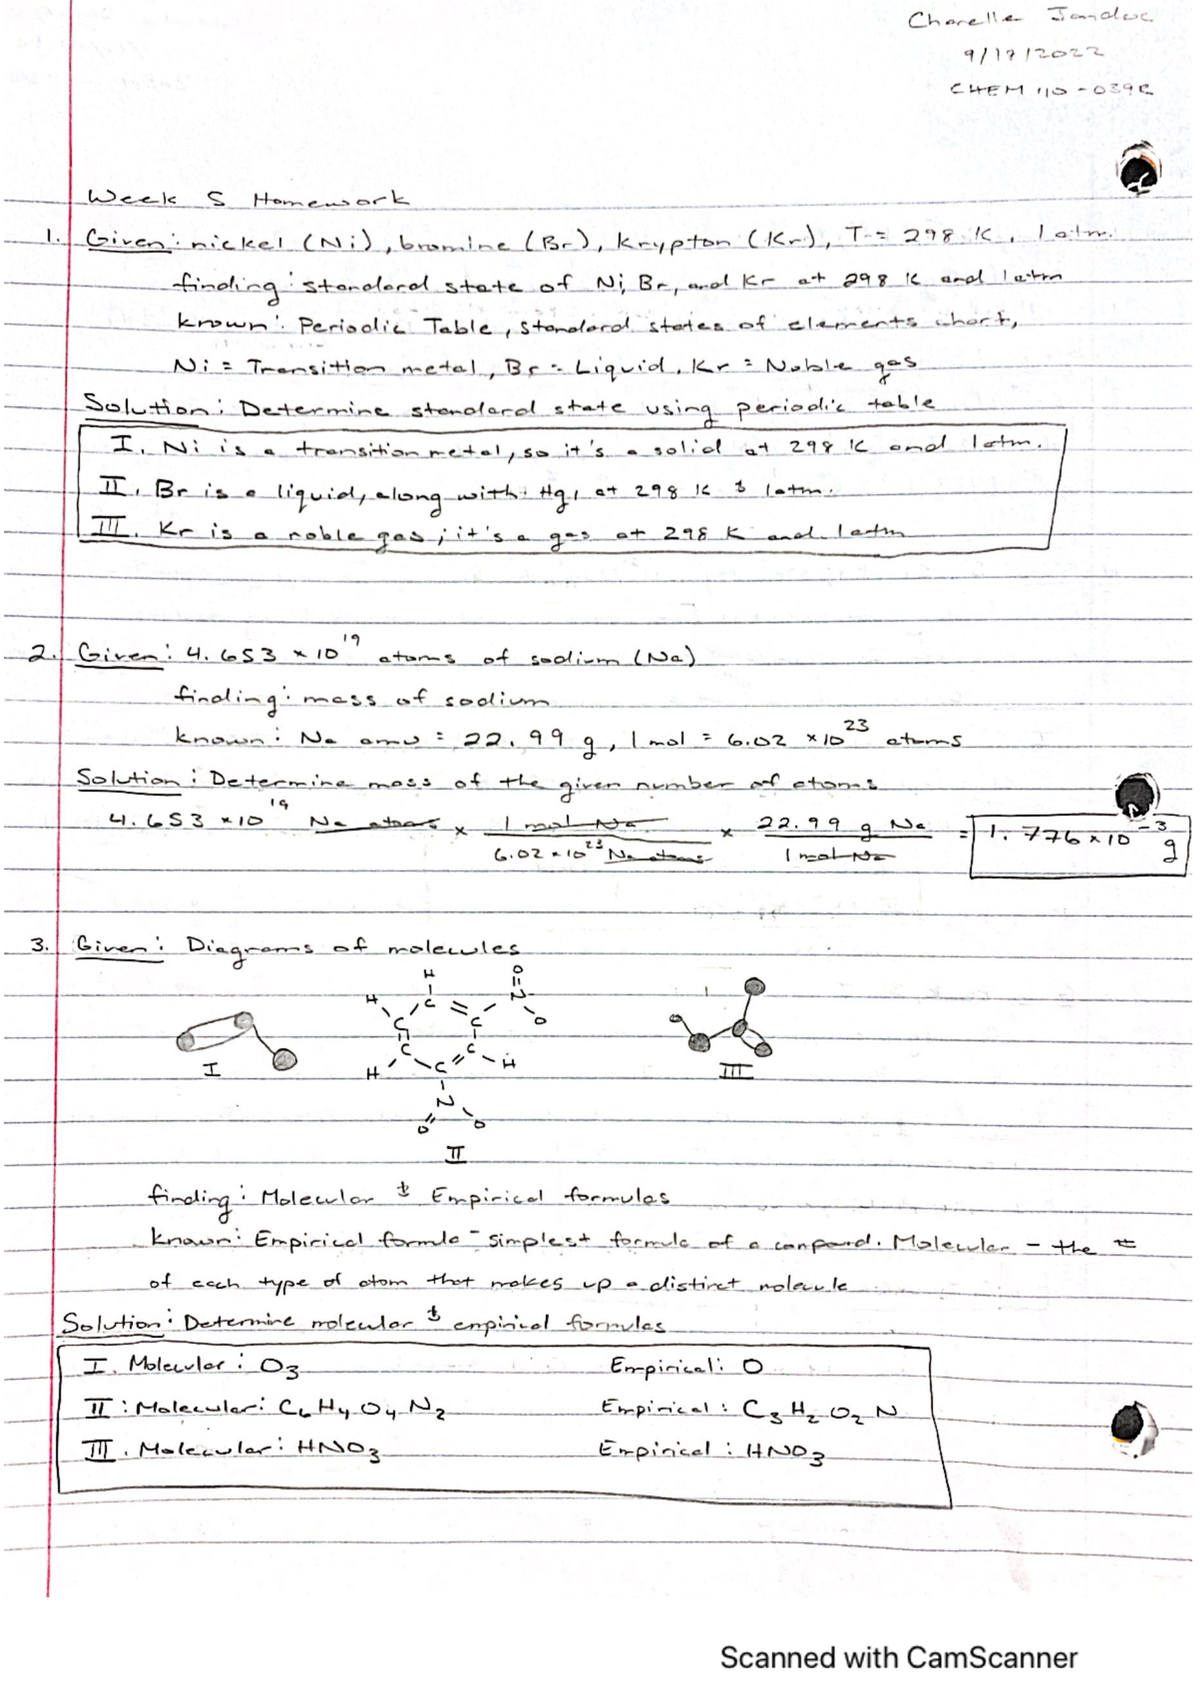 Charelle Jandoc
9/17/2022
CHEM 110-039C
Week 5 Homework
1. Given: nickel (Ni), bromine (Br), Krypton (Kr), T = 298 K, 1 atm
finding: standard state of Ni, Br, and Kr at 298 K and 1 atm
known: Periodic Table, standard states of elements chart,
Ni = Transition metal, Br = Liquid, Kr = Noble gas
Solution: Determine standard state using periodic table
I. Ni is a transition metal, so it's a solid at 298 K and 1 atm.
II. Br is a liquid, along with Hg, at 298 K & 1 atm.
III. Kr is a noble gas; it's a gas at 298 K and 1 atm
2. Given: 4.653 × 10^19 atoms of sodium (Na)
finding: mass of sodium
known: Na amu = 22.99 g, 1 mol = 6.02 × 10^23 atoms
Solution: Determine mass of the given number of atoms
4.653 × 10^19 Na atoms × 1 mol Na / 6.02 × 10^23 Na atoms × 22.99 g Na / 1 mol Na = 1.776 × 10^-3 g
3. Given: Diagrams of molecules
H O
H C = N
C C O
C C H
H C
N
O O
I II III
finding: Molecular & Empirical formulas
known: Empirical formula - simplest formula of a compound. Molecular - the #
of each type of atom that makes up a distinct molecule
Solution: Determine molecular & empirical formulas
I. Molecular: O3 Empirical: O
II: Molecular: C6H4O4N2 Empirical: C3H2O2N
III. Molecular: HNO3 Empirical: HNO3
Scanned with CamScanner